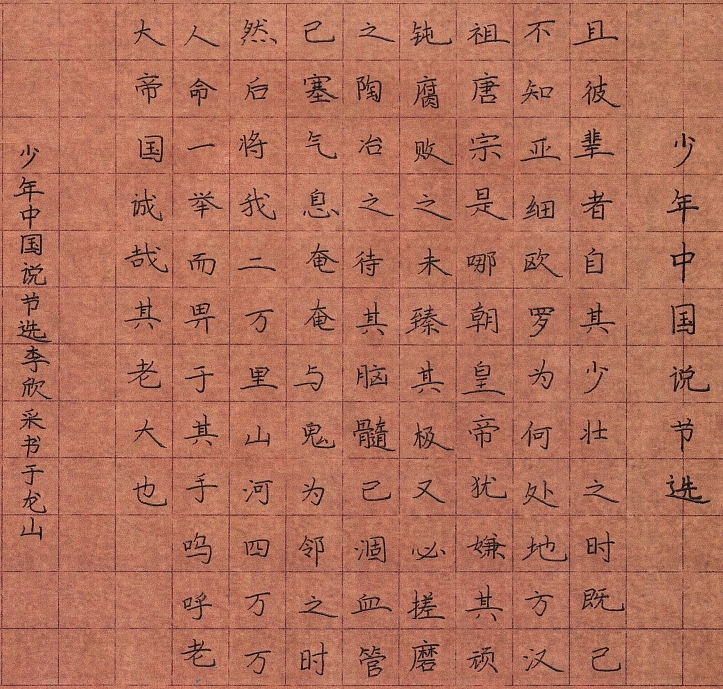 少年中国说节选
且彼辈者自其少壮之时既已
不知亚细欧罗为何处地方汉
祖唐宗是哪朝皇帝犹嫌其顽
钝腐败之未臻其极又必搓磨
之陶冶之待其脑髓已涸血管
已塞气息奄奄与鬼为邻之时
然后将我二万里山河四万万
人命一举而畀于其手呜呼老
大帝国诚哉其老大也
少年中国说节选李欣采书于龙山